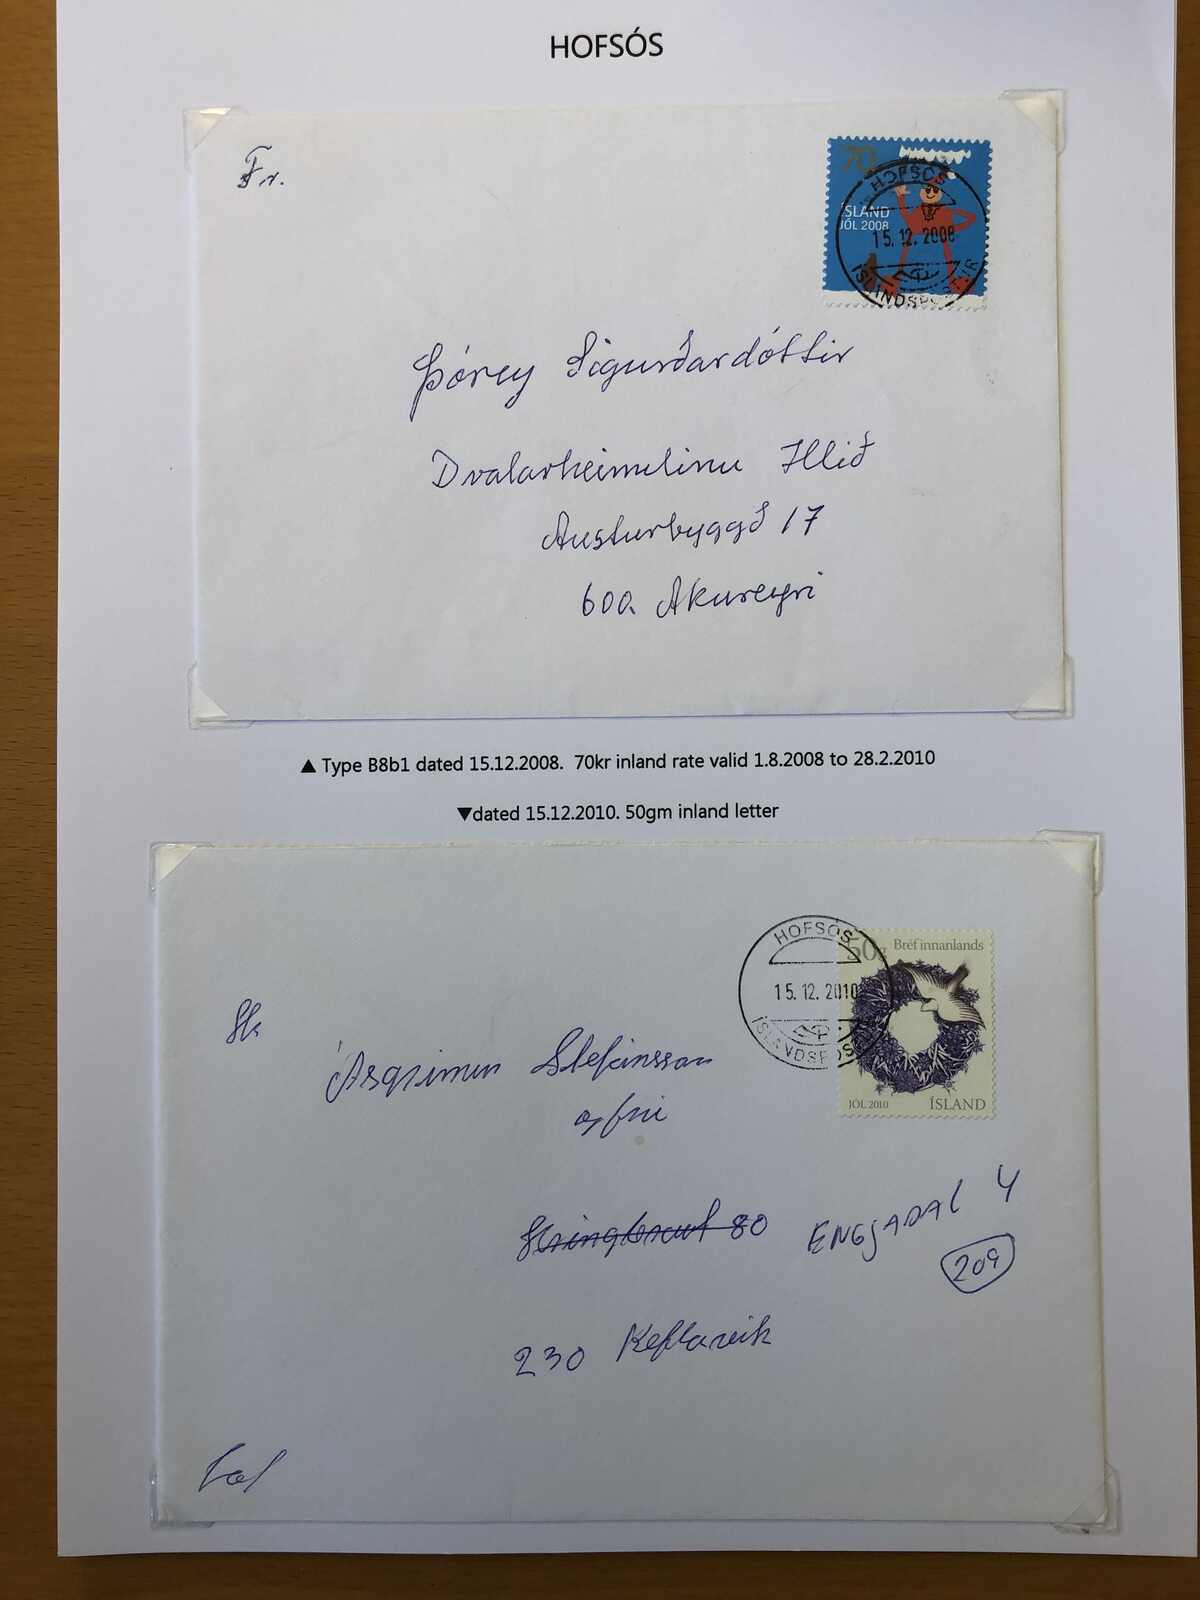 HOFSÓS
Fr.
70
ÍSLAND
JÓL 2008
HOFSÓS
15.12.2008
ÍSLANDSPÓSTUR
Þórey Sigurðardóttir
Dvalarheimilinu Hlíð
Austurbyggð 17
600 Akureyri
▲ Type B8b1 dated 15.12.2008. 70kr inland rate valid 1.8.2008 to 28.2.2010
▼dated 15.12.2010. 50gm inland letter
HOFSÓS
15.12.2010
ÍSLANDSPÓS
50g Bréf innanlands
JÓL 2010 ÍSLAND
Hr
Ásgrímur Stefánsson
og frú
Hringbraut 80 ENGJADAL 4
209
230 Keflavík